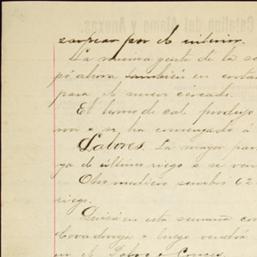 zarpear por el interior.
La misma gente de la se
pó ahora también en corta
para el nuevo cercado.
El horno de cal produjo
non o se ha comenzado á
Labores. La mayor par
ya de último riego o se va
Otro mediero sembró 62
riego.
Quizás en esta semana con
Covadonga o luego vendrá
en el Pobre o Conces